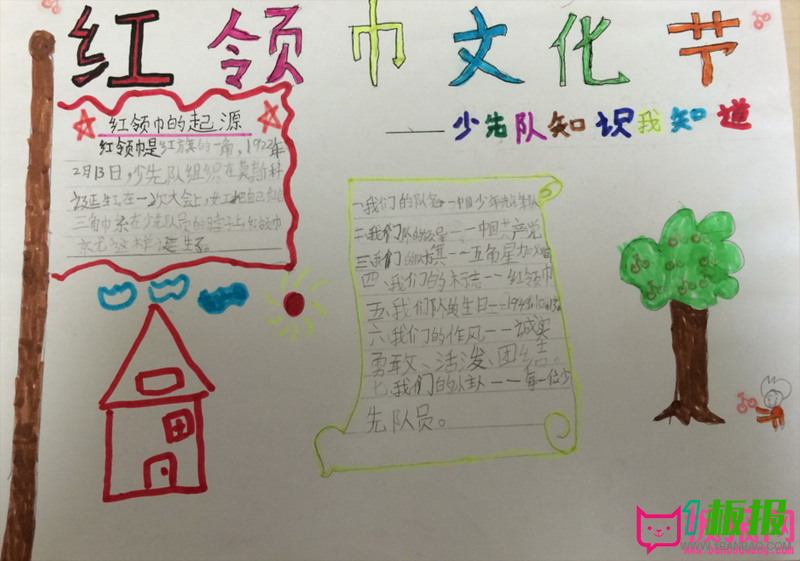 红领巾文化节
——少先队知识我知道
红领巾的起源
红领巾是红旗的一角,1922年
2月13日,少先队组织在莫斯科
诞生了,在一次大会上,女工把自己
三角巾系在少先队员的脖子上,红领巾
就这样诞生了。
一、我们的队名——中国少年先锋队
二、我们队的领导——中国共产党
三、我们的队旗——五角星加火炬
四、我们的标志——红领巾
五、我们队的生日——1949.10.13
六、我们的作风——诚实
勇敢、活泼、团结
七、我们的——每一位少
先队员。
1板报
WWW.1BANBAO.COM